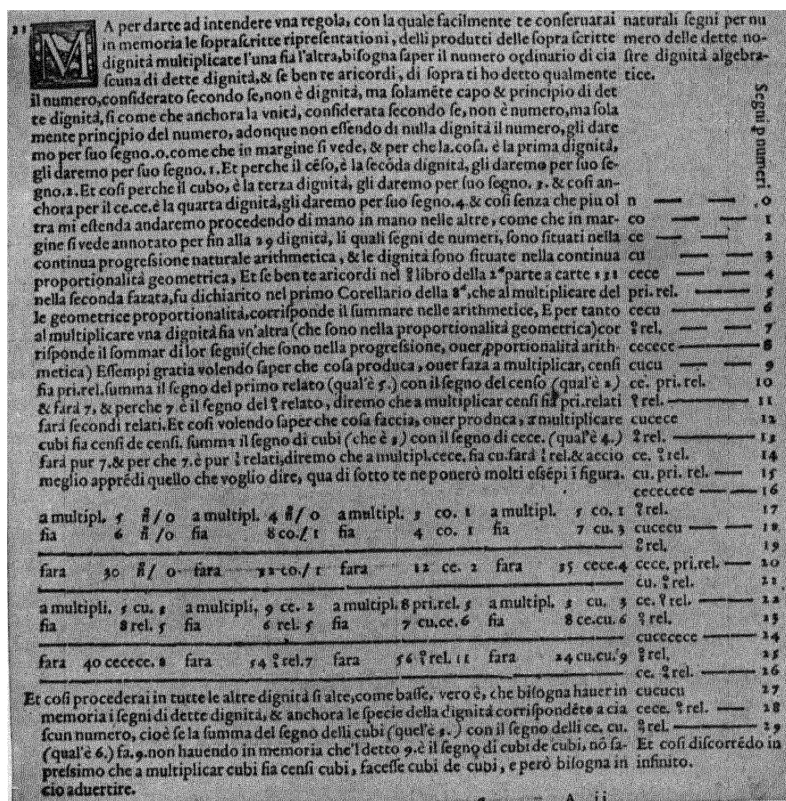 21
MA per darte ad intendere vna regola, con la quale facilmente te conseruarai
in memoria le soprascritte ripresentationi, delli produtti delle sopra scritte
dignità multiplicate l'una fia l'altra, bisogna saper il numero ordinario di cia
scuna di dette dignità, & se ben te aricordi, di sopra ti ho detto qualmente
il numero, considerato secondo se, non è dignità, ma solamẽte capo & principio di det
te dignità, si come che anchora la vnità, considerata secondo se, non è numero, ma sola
mente principio del numero, adonque non essendo di nulla dignità il numero, gli dare
mo per suo segno. 0. come che in margine si vede, & per che la. cosa. è la prima dignità,
gli daremo per suo segno. 1. Et perche il cẽso, è la secõda dignità, gli daremo per suo se-
gno. 2. Et cosi perche il cubo, è la terza dignità, gli daremo per suo segno. 3. & cosi an-
chora per il ce.ce. è la quarta dignità, gli daremo per suo segno. 4 & cosi senza che piu ol
tra mi estenda andaremo procedendo di mano in mano nelle altre, come che in mar-
gine si vede annotato per fin alla 29 dignità, li quali segni de numeri, sono situati nella
continua progressione naturale arithmetica, & le dignità sono situate nella continua
proportionalità geometrica, Et se ben te aricordi nel libro della 2ª parte a carte 131
nella seconda fazata, fu dichiarito nel primo Corellario della 8ª, che al multiplicare del
le geometrice proportionalità, corrisponde il summare nelle arithmetice, E per tanto
al multiplicare vna dignità fia vn'altra (che sono nella proportionalità geometrica) cor
risponde il sommar di lor segni (che sono nella progressione, ouer pportionalità arith-
metica) Essempi gratia volendo saper che cosa produca, ouer faza a multiplicar, censi
fia pri.rel. summa il segno del primo relato (qual'è 5.) con il segno del censo (qual'è 2)
& farà 7, & perche 7 è il segno del 2º relato, diremo che a multiplicar censi fia pri relati
farà secondi relati. Et cosi volendo saper che cosa faccia, ouer produca, a multiplicare
cubi fia censi de censi. summa il segno di cubi (che è 3) con il segno di cece. (qual'è 4.)
farà pur 7. & per che 7. è pur 2º relati, diremo che a multipl. cece. fia cu. farà 2º rel. & accio
meglio apprẽdi quello che voglio dire, qua di sotto te ne ponerò molti essẽpi ĩ figura.
a multipl. 5 ñ/0 a multipl. 4 ñ/0 a multipl. 3 co. 1 a multipl. 5 co. 1
fia 6 ñ/0 fia 8 co./1 fia 4 co. 1 fia 7 cu. 3
fara 30 ñ/0 fara 32 co./1 fara 12 ce. 2 fara 35 cece. 4
a multipli. 5 cu. 3 a multipli, 9 ce. 2 a multipl. 8 pri.rel. 5 a multipl. 3 cu. 3
fia 8 rel. 5 fia 6 rel. 5 fia 7 cu.ce. 6 fia 8 ce.cu. 6
fara 40 cecece. 8 fara 54 2º rel. 7 fara 56 rel. 11 fara 24 cu.cu. 9
Et cosi procederai in tutte le altre dignità si alte, come basse, vero è, che bisogna hauer in
memoria i segni di dette dignità, & anchora le specie della dignità corrispondẽte a cia
scun numero, cioè se la summa del segno delli cubi (quel'è 3.) con il segno delli ce. cu.
(qual'è 6.) fa. 9. non hauendo in memoria che'l detto 9. è il segno di cubi de cubi, nõ sa-
pressimo che a multiplicar cubi fia censi cubi, facesse cubi de cubi, e però bisogna in
cio aduertire.
A ii
naturali segni per nu
mero delle dette no-
stre dignità algebra-
tice.
Segni p numeri
n — — 0
co — — 1
ce — — 2
cu — — 3
cece — — 4
pri. rel. — 5
cecu — 6
2º rel. — — 7
cecece — 8
cucu — — 9
ce. pri. rel. 10
rel. — 11
cucece 12
rel. — 13
ce. 2º rel. 14
cu. pri. rel. — 15
cecececе — 16
rel. 17
cucecu — — 18
rel. 19
cece. pri.rel. — 20
cu. 2º rel. 21
ce. rel. — 22
rel. 23
cucecece — 24
rel. 25
ce. rel. — 26
cucucu 27
cece. 2º rel. — 28
rel. — 29
Et cosi discorrẽdo in
infinito.